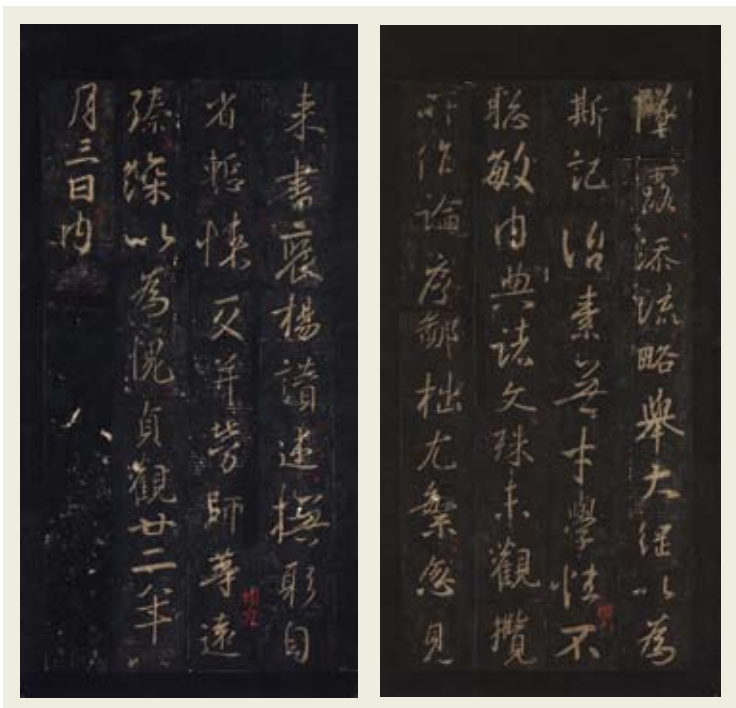 墜露添流略舉大綱以為
斯記治素無才學性不
聰敏內典諸文殊未觀攬
所作論序鄙拙尤繁忽見
來書褒揚讚述撫躬自
省慙悚交并勞師等遠
臻深以為愧貞觀廿二年
月三日內
八